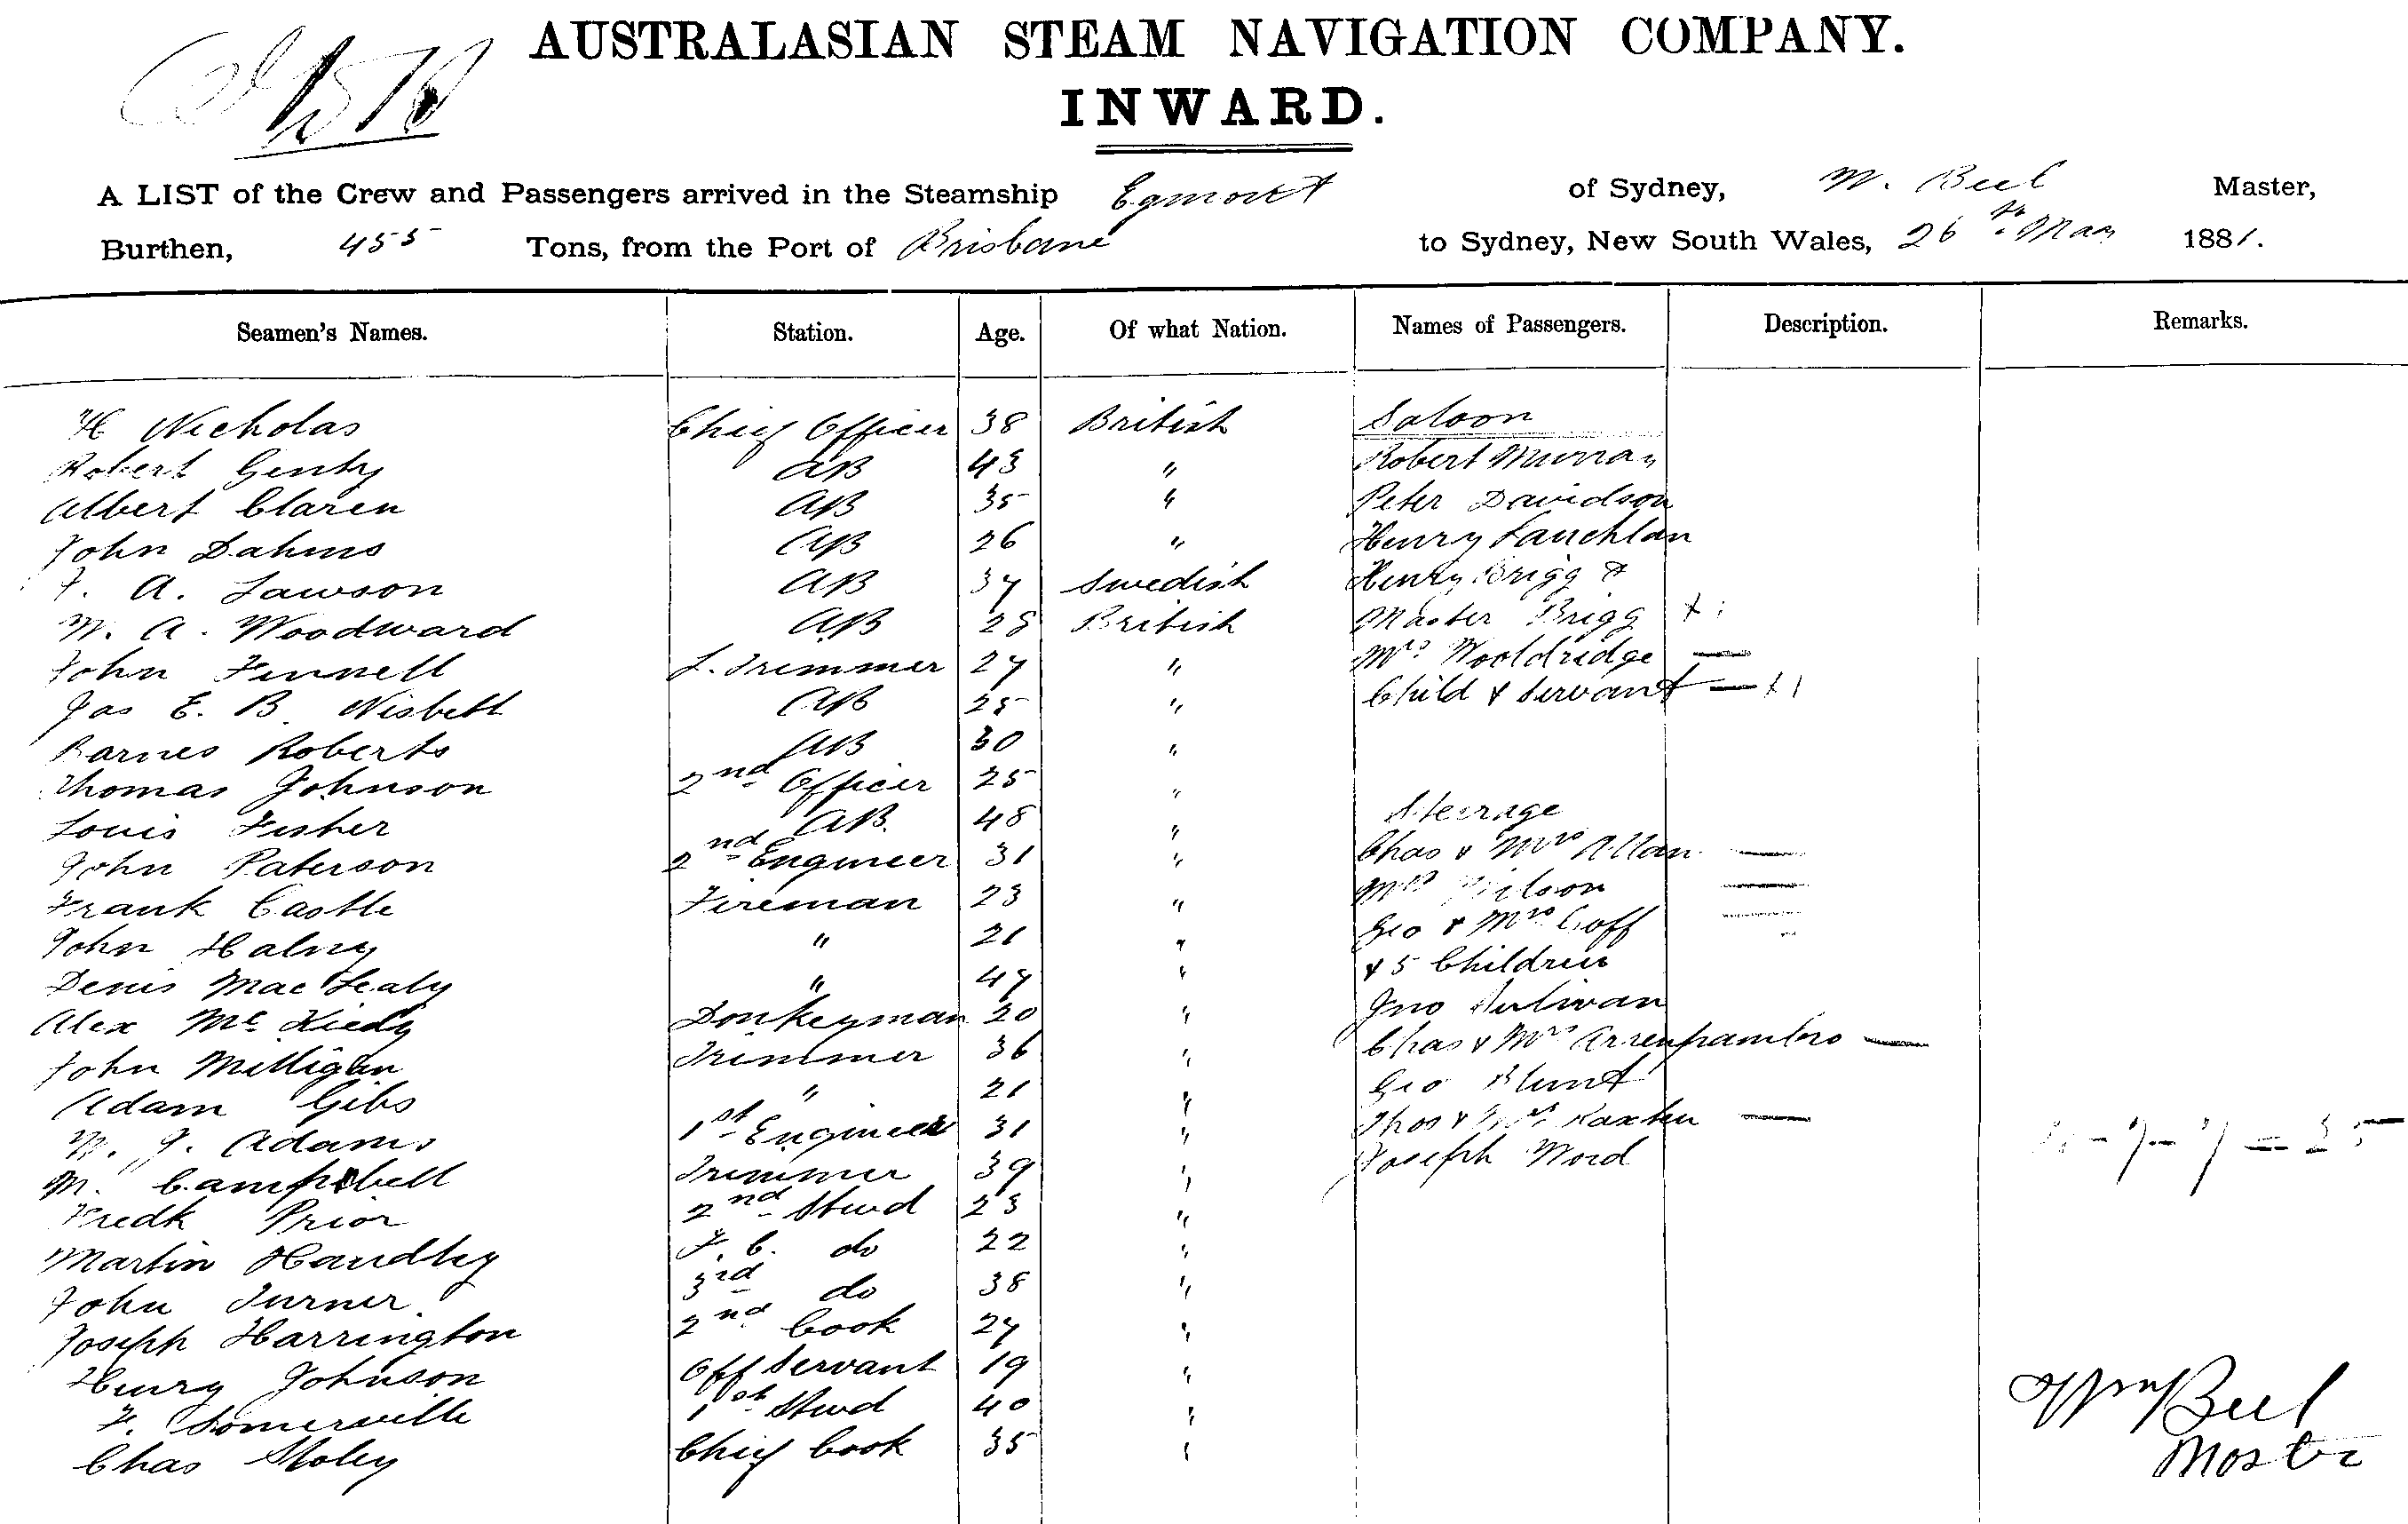 AUSTRALASIAN STEAM NAVIGATION COMPANY.
INWARD.
A LIST of the Crew and Passengers arrived in the Steamship Egmont of Sydney, W. Beel Master,
Burthen, 455 Tons, from the Port of Brisbane to Sydney, New South Wales, 26th May 1881.
Seamen's Names. Station. Age. Of what Nation. Names of Passengers. Description. Remarks.
H Nicholas Chief Officer 38 British Saloon
Robert Genty AB 43 " Robert Murray
Albert Claren AB 35 " Peter Davidson
John Dahms AB 26 " Henry Lauchlan
F. A. Lawson AB 37 Swedish Henry Brigg &
W. A. Woodward AB 28 British Master Brigg
John Finnell L. Trimmer 27 " Mrs Wooldridge —
Jas E. B. Nisbett AB 25 " Child & Servant —
Barnes Roberts AB 30 "
Thomas Johnson 2nd Officer 25 "
Louis Fisher AB. 48 " Steerage
John Paterson 2nd Engineer 31 " Chas & Mrs Allan —
Frank Castle Fireman 23 " Mrs —
John Halny " 21 " Geo & Mrs Goff
Denis Mac Lealy " 47 " & 5 Children
Alex Mc Donkeyman 20 " Jno Sulivan
John Milligan Trimmer 36 " Chas & Mrs —
Adam Gibs " 21 " Geo Blunt
W. J. Adams 1st Engineer 31 " Thos & Mrs —
M. Campbell Trimmer 39 " Joseph Word
Fredk Prior 2nd Stwd 23 "
Martin Handley F. C. do 22 "
John Turner 3rd do 38 "
Joseph Harrington 2nd Cook 27 "
Henry Johnson Off Servant 19 "
F. Somerville 1st Stwd 40 "
Chas Stoley Chief Cook 35 "
Wm Beel
Master